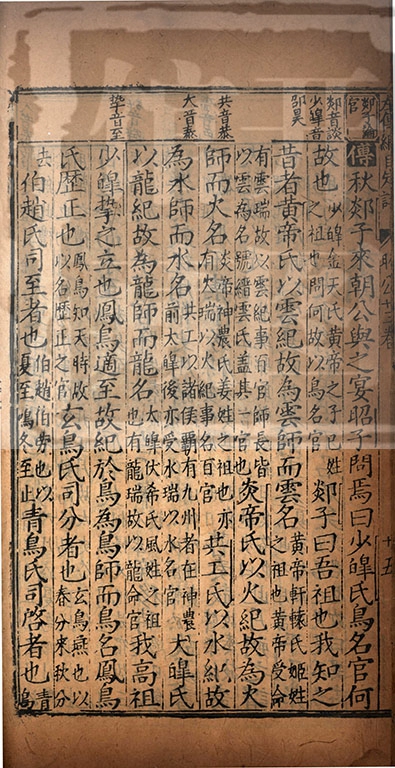 郯子論官
郯音談
少皥音
邵昊
共音恭
大音泰
摯音至
昭公十三卷 十五
傳秋郯子來朝公與之宴昭子問焉曰少皥氏鳥名官何
故也少皥金天氏黃帝之子已姓之祖也問何故以鳥名官郯子曰吾祖也我知之
昔者黃帝氏以雲紀故為雲師而雲名黃帝軒轅氏姬姓之祖也黃帝受命
有雲瑞故以雲紀事百官師長皆以雲為名號縉雲氏盖其一官也炎帝氏以火紀故為火
師而火名炎帝神農氏姜姓之祖也亦有火瑞以火紀事名百官共工氏以水紀故
為水師而水名共工以諸侯覇有九州者在神農前太皥後亦受水瑞以水名官大皥氏
以龍紀故為龍師而龍名太皥伏希氏風姓之祖也有龍瑞故以龍命官我高祖
少皥摯之立也鳳鳥適至故紀於鳥為鳥師而鳥名鳳鳥
氏歷正也鳳鳥知天時故以名歷正之官玄鳥氏司分者也玄鳥燕也以春分來秋分
去伯趙氏司至者也伯趙伯勞也以夏至鳴冬至止青鳥氏司啓者也青鳥